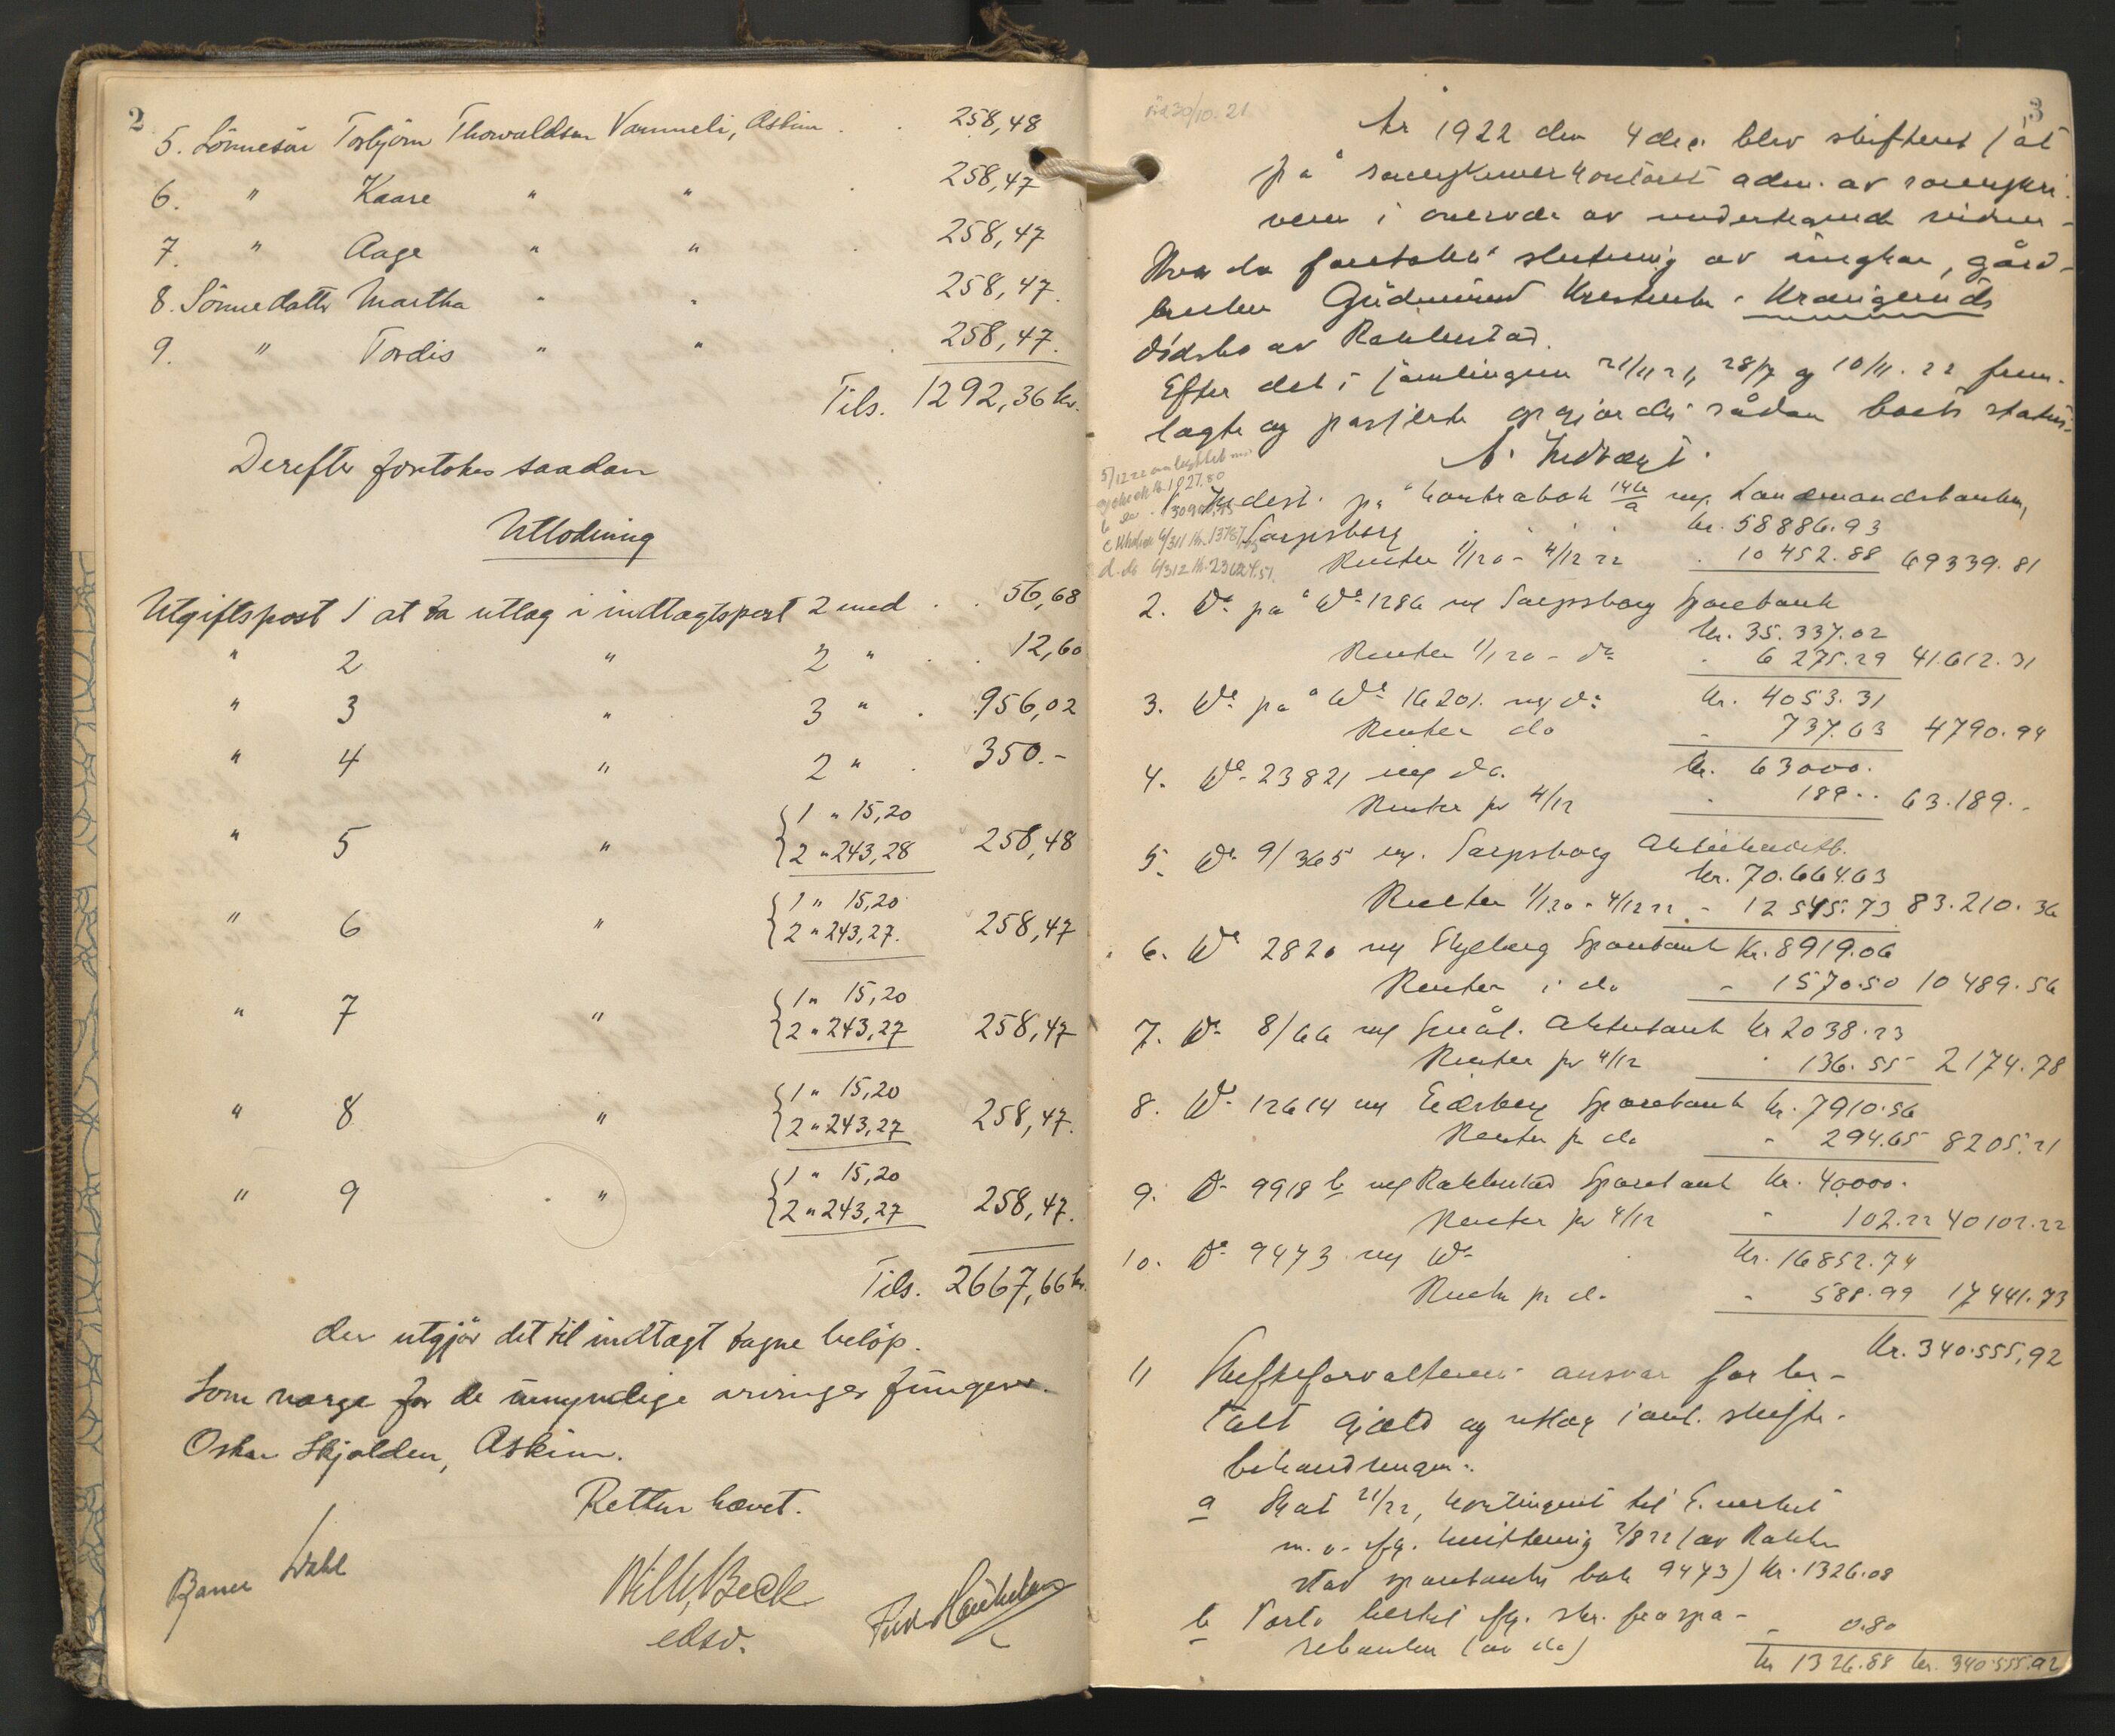 2
5. Sönnesön Torbjörn Thorvaldsen Vammeli, Askim . . 258,48
6. " Kaare " " . 258,47
7. " Aage " " . 258,47
8. Sönnedatter Martha " " 258,47.
9. " Tordis " " . 258,47.
Tils. 1292,36 kr.
Derefter foretokes saadan
Utlodning
Utgiftspost 1 at ta utlæg i indtægtspost 2 med . . 56,68
" 2 " 2 " . . 12,60
" 3 " 3 " . 956,02
" 4 " 2 " . 350.-
" 5 " {1 " 15,20
2 " 243,28 258,48
" 6 " {1 " 15,20
2 " 243,27. 258,47
" 7 " {1 " 15,20
2 " 243,27 258,47
" 8 " {1 " 15,20
2 " 243,27 258,47.
" 9 . " {1 " 15,20
2 " 243,27 258,47.
Tils. 2667,66 kr.
der utgjör det til indtægt tagne belöp.
Som værge for de umyndige arvinger fungerer
Oskar Skjolden, Askim.
Retten hævet.
Wahl
Wilh. Beck
edsv.
3
30/10.21
År 1922 den 4 dec. blev skifteret sat
på sorenskriverkontoret adm. av sorenskri-
veren i overvær av undertegnede vidner.
Hvor da foretokes slutning av ungkar, gård-
bruker Gudmund Kristensen Krangeruds
dödsbo av Rakkestad.
Efter det i samlingene 21/11 21, 28/7 og 10/11. 22 frem-
lagte og passerte opgjördes sådan boets status:
A. Indtægt.
1. Indest. på kontrabok 146/a mf. Landmandsbanken,
Sarpsborg kr. 58886.93
Renter 1/1 20 - 4/12 22 . 10452.88 69339.81
2. Do. på Do 1286 mf Sarpsborg Sparebank
kr. 35.337.02
Renter 1/1 20 - do . 6275.29 41.612.31
3. Do på Do 16201. mf do kr. 4053.31
Renter do - 737.63 4790.94
4. Do 23821 mf do. kr. 63000.
Renter pr 4/12 . 189.. 63.189..
5. Do 9/365 mf. Sarpsborg Aktiekreditb.
kr. 70.664.63
Renter 1/1 20 - 4/12 22 . - 12545.73 83.210.36
6. Do 2820 mf Skjeberg Sparebank Kr. 8919.06
Renter i do - 1570.50 10489.56
7. Do 8/66 mf Smål. Aktiebank kr 2038.23
Renter pr 4/12 . 136.55 2174.78
8. Do 12614 mf Eidsberg Sparebank kr. 7910.56
Renter pr do - 294.65 8205.21
9. Do 9918 b mf Rakkestad Sparebank kr. 40000.
Renter pr 4/12 - 102.22 40102.22
10. Do 9473 mf Do kr. 16852.74
Renter pr do - 588.99 17441.73
Kr. 340.555,92
11 Skifteforvalterens ansvar for be-
talt gjæld og utlæg i anl. skifte-
behandlingen:
a Skat 21/22, kontingent til E.verket
m.v. ifg. kvittering 2/8 22 (av Rakke-
stad sparebanks bok 9473) kr. 1326.08
b Porto hertil ifg. skr. fra spa-
rebanken (av do) - 0.80
kr 1326.88 kr. 340.555.92